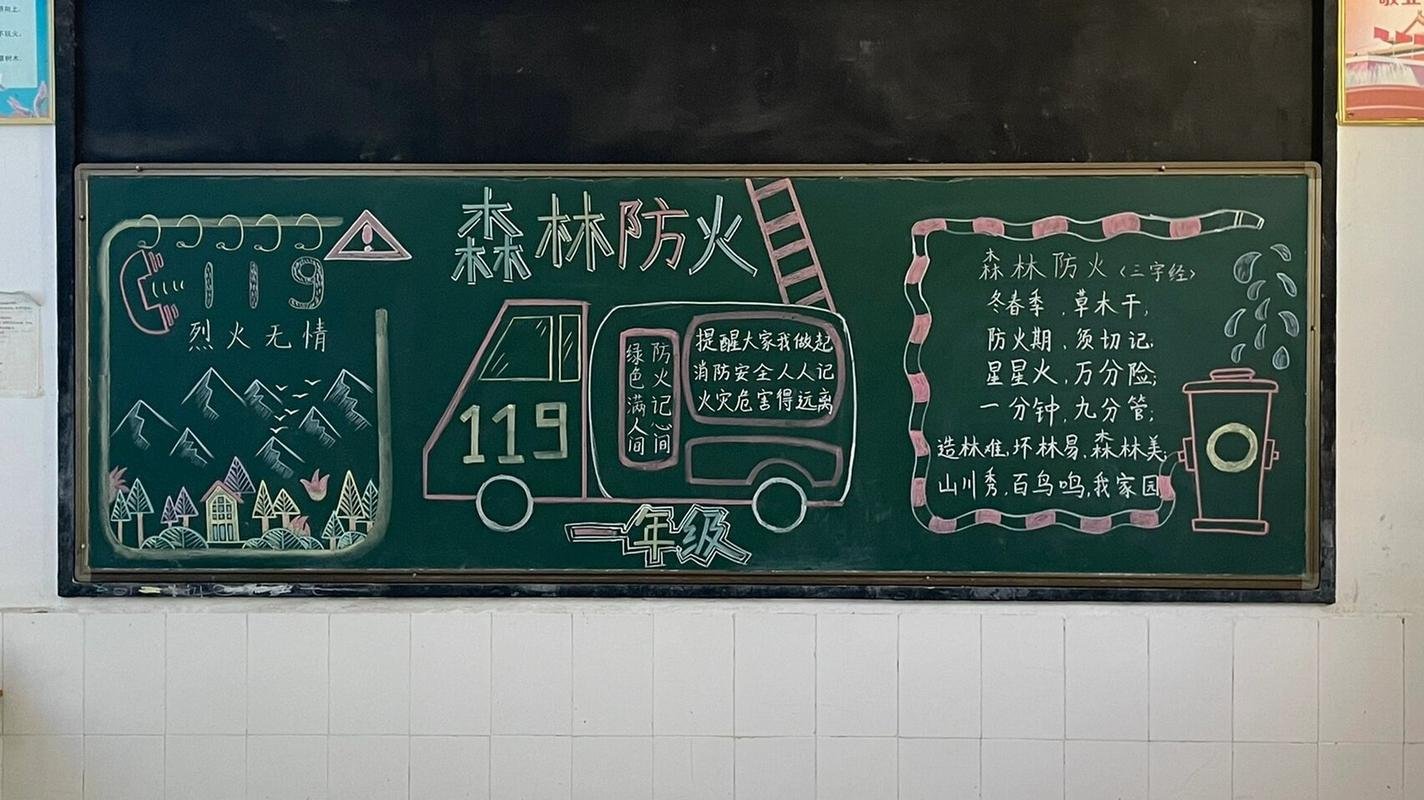 森林防火
119
烈火无情
119
防火记心间
绿色满人间
提醒大家我做起
消防安全人人记
火灾危害得远离
一年级
森林防火〈三字经〉
冬春季,草木干,
防火期,须切记,
星星火,万分险;
一分钟,九分管;
造林难,坏林易,森林美;
山川秀,百鸟鸣,我家园